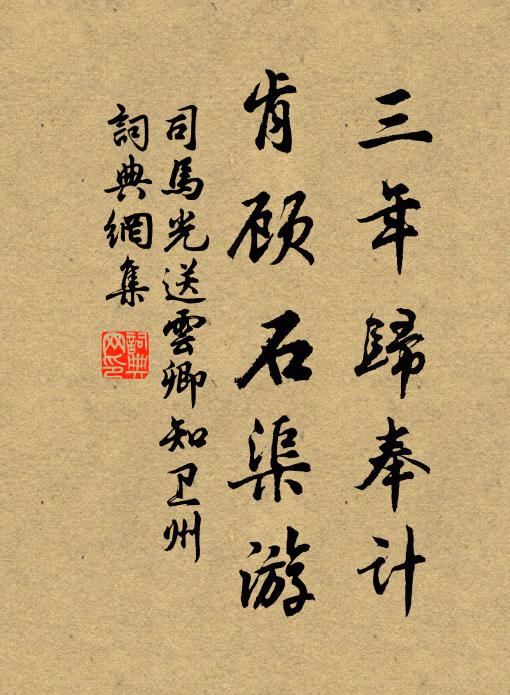 三年歸奉计
肯顾石渠游
司馬光送雲卿知卫州
詞典網集
詞典網印